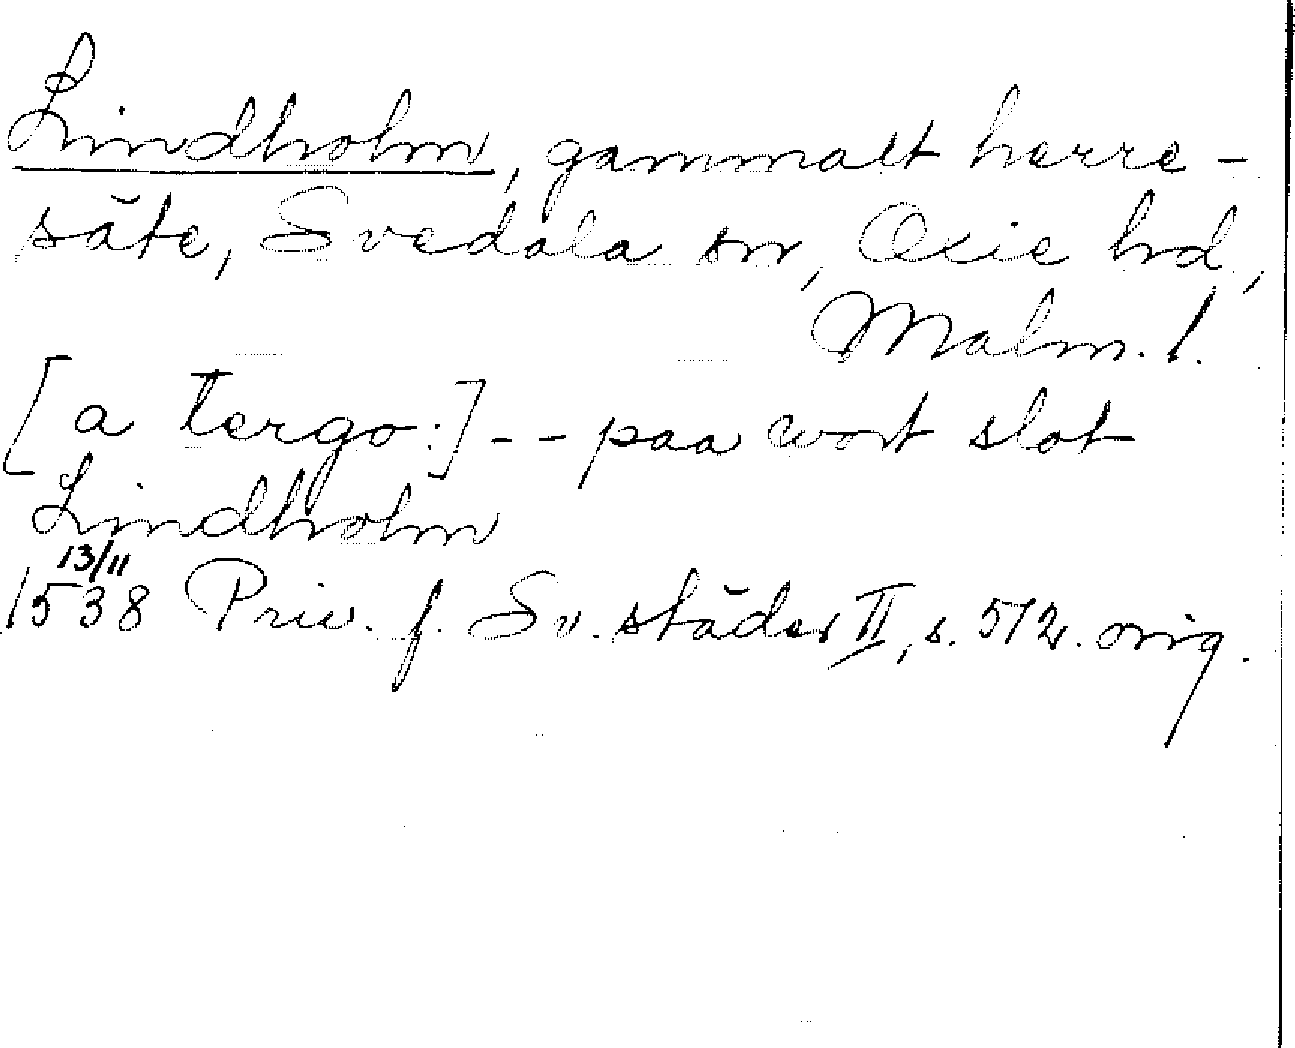 Lindholm, gammalt herre-
säte, Svedala sn, Oxie hd,
Malm. l.
[a tergo:] -- paa wort slot
Lindholm
13/11
1538 Priv. f. Sv. städer II, s. 572. orig.